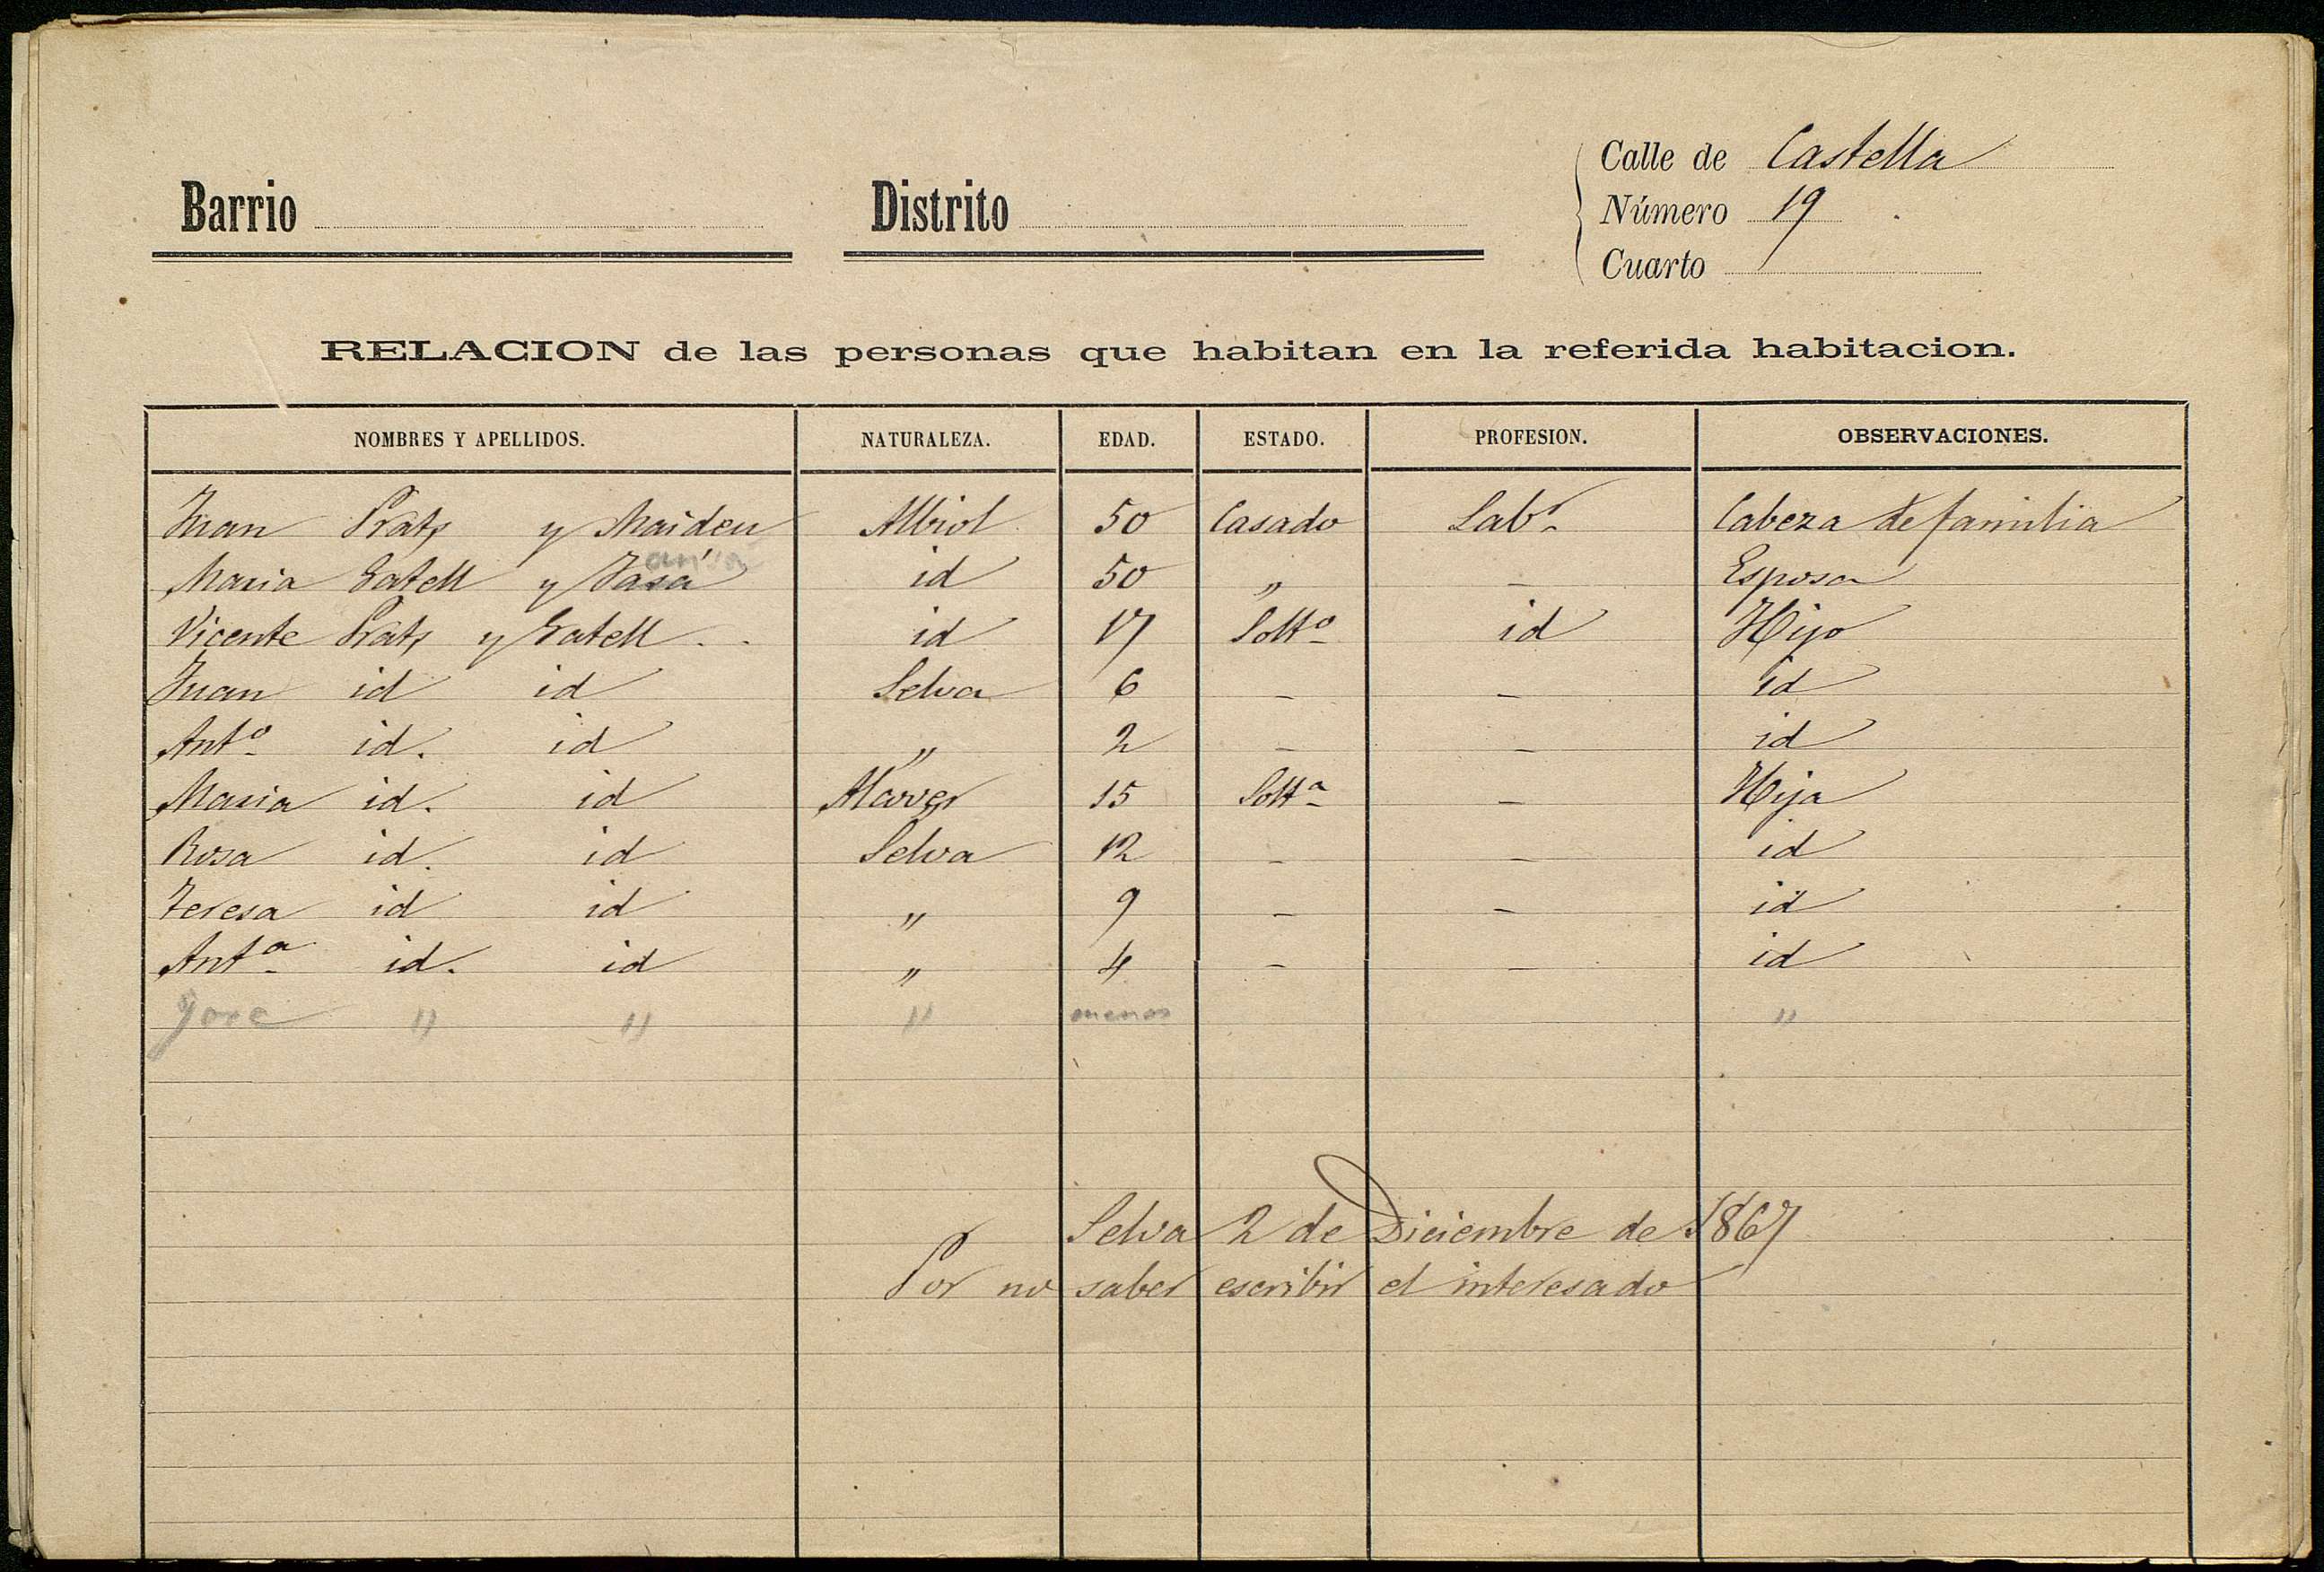 Calle de Castella
Barrio Distrito Número 19
Cuarto
RELACION de las personas que habitan en la referida habitacion.
NOMBRES Y APELLIDOS. NATURALEZA. EDAD. ESTADO. PROFESION. OBSERVACIONES.
Juan Prats y Maideu Albiol 50 Casado Labr. Cabeza de familia
Maria Gatell y id 50 " – Esposa
Vicente Prats y Gatell . . id 17 Solto id Hijo
Juan id id Selva 6 – – id
Anto id. id " 2 – – id
Maria id. id 15 Solta – Hija
Rosa id. id Selva 12 – – id
Teresa id id " 9 – – id
Anta id. id " 4 – – id
Jose " " " menos "
Selva 2 de Diciembre de 1867
Por no saber escribir el interesado